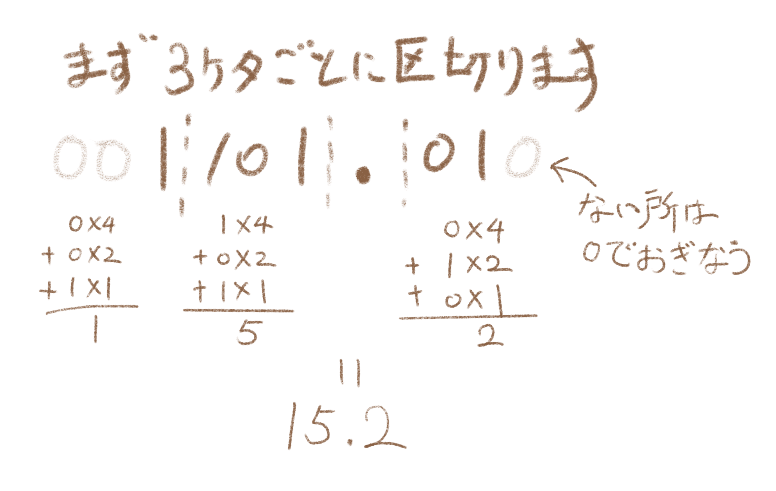 まず3ケタごとに区切ります
001101.010
ない所は
0でおぎなう
0×4
+0×2
+1×1
1
1×4
+0×2
+1×1
5
0×4
+1×2
+0×1
2
=
15.2